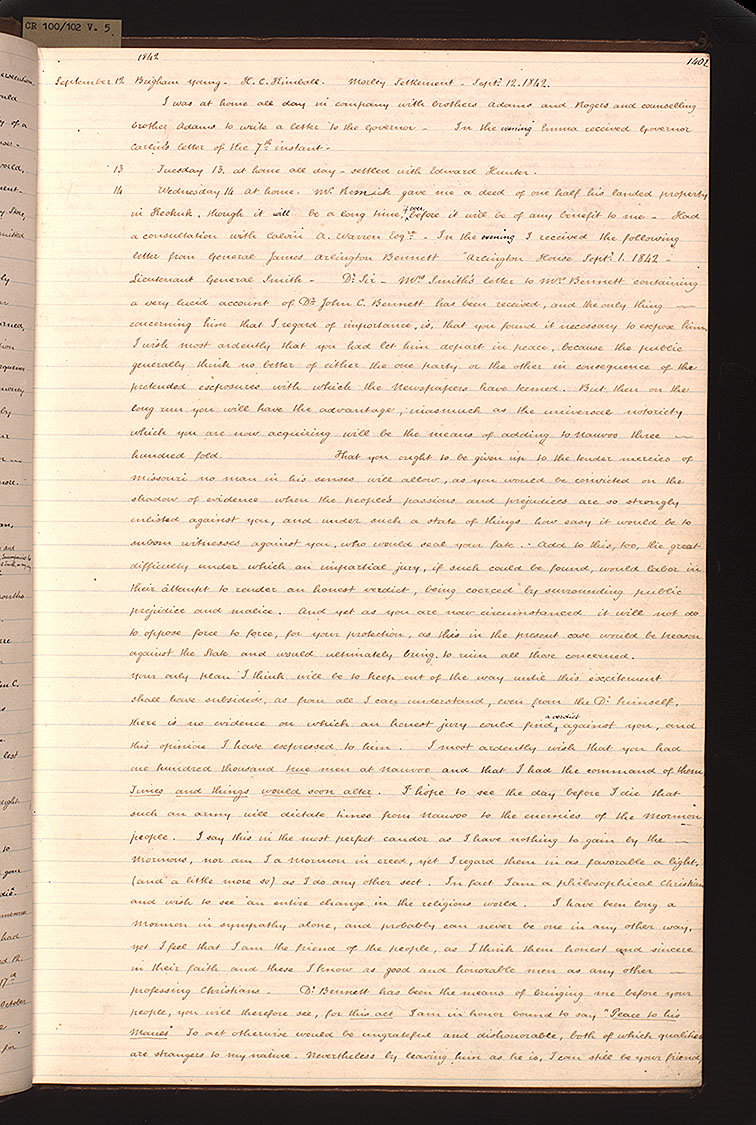 CR 100/102 V. 5
1842
1402
September 12 Brigham Young - H. C. Kimball. Morley Settlement - Septr. 12. 1842.
I was at home all day in company with brothers Adams and Rogers and counselling
brother Adams to write a letter to the Governor - In the evening Emma received Governor
Carlin's letter of the 7th instant -
13 Tuesday 13. at home all day - settled with Edward Hunter.
14 Wednesday 14 at home. Mr. Remick gave me a deed of one half his landed property
in Keokuk, though it will be a long time, if ever, before it will be of any benefit to me - Had
a consultation with Calvin A. Warren Esqre. - In the evening I received the following
letter from General James Arlington Bennett "Arlington House Septr. 1. 1842 -
Lieutenant General Smith - Dr. Sir - Mrs. Smith's letter to Mrs. Bennett containing
a very lucid account of Dr. John C. Bennett has been received, and the only thing
concerning him that I regard of importance, is, that you found it necessary to expose him,
I wish most ardently that you had let him depart in peace, because the public
generally think no better of either the one party or the other in consequence of the
pretended exposures with which the Newspapers have teemed. But then on the
long run you will have the advantage, inasmuch as the universal notoriety
which you are now acquiring will be the means of adding to Nauvoo three
hundred fold That you ought to be given up to the tender mercies of
Missouri no man in his senses will allow, as you would be convicted on the
shadow of evidence when the peoples passions and prejudices are so strongly
enlisted against you, and under such a state of things how easy it would be to
suborn witnesses against you, who would seal your fate. Add to this, too, the great
difficulty under which an impartial jury, if such could be found, would labor in
their attempt to render an honest verdict, being coerced by surrounding public
prejudice and malice. And yet as you are now circumstanced it will not do
to oppose force to force, for your protection, as this in the present case would be treason
against the State and would ultimately bring to ruin all those concerned.
Your only plan I think will be to keep out of the way until this excitement
shall have subsided, as from all I can understand, even from the Dr. himself,
there is no evidence on which an honest jury could find a verdict against you, and
this opinion I have expressed to him. I most ardently wish that you had
one hundred thousand true men at Nauvoo and that I had the command of them
Times and things would soon alter. I hope to see the day before I die that
such an army will dictate times from Nauvoo to the enemies of the Mormon
people. I say this in the most perfect candor as I have nothing to gain by the
Mormons, nor am I a Mormon in creed, yet I regard them in as favorable a light,
(and a little more so) as I do any other sect. In fact I am a philosophical Christian
and wish to see an entire change in the religious world. I have been long a
Mormon in sympathy alone, and probably can never be one in any other way,
yet I feel that I am the friend of the people, as I think them honest and sincere
in their faith and these I know as good and honorable men as any other
professing Christians - Dr. Bennett has been the means of bringing me before your
people, you will therefore see, for this act I am in honor bound to say "Peace to his
Manes" To act otherwise would be ungrateful and dishonorable, both of which qualities
are strangers to my nature. Nevertheless by leaving him as he is, I can still be your friend,